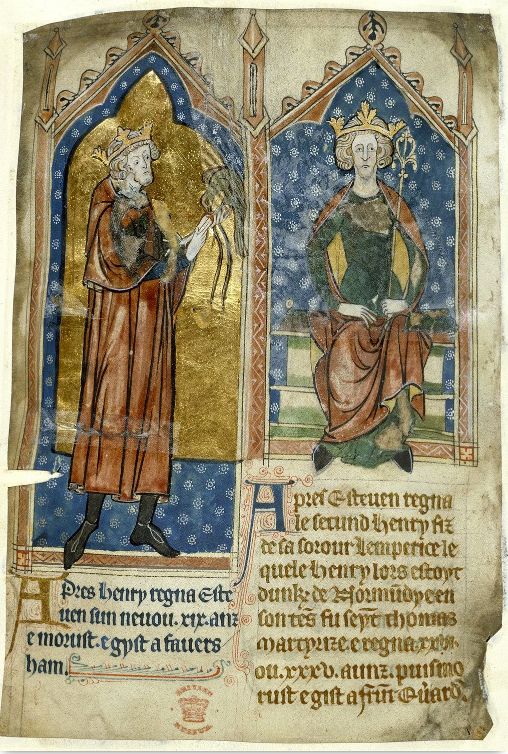 Apres henry regna Este
uen sun neuou. xix. anz
e morust. e gyst a fauers
ham.
Apres Esteuen regna
le secund henry fiz
de sa sorour lemperice le
quele henry lors estoyt
dunk de Normůdye en
son tēs fu seynt thomas
martyrize. e regna
ou. xxxv. aunz. puis mo
rust e gist a
BRITISH
MUSEUM